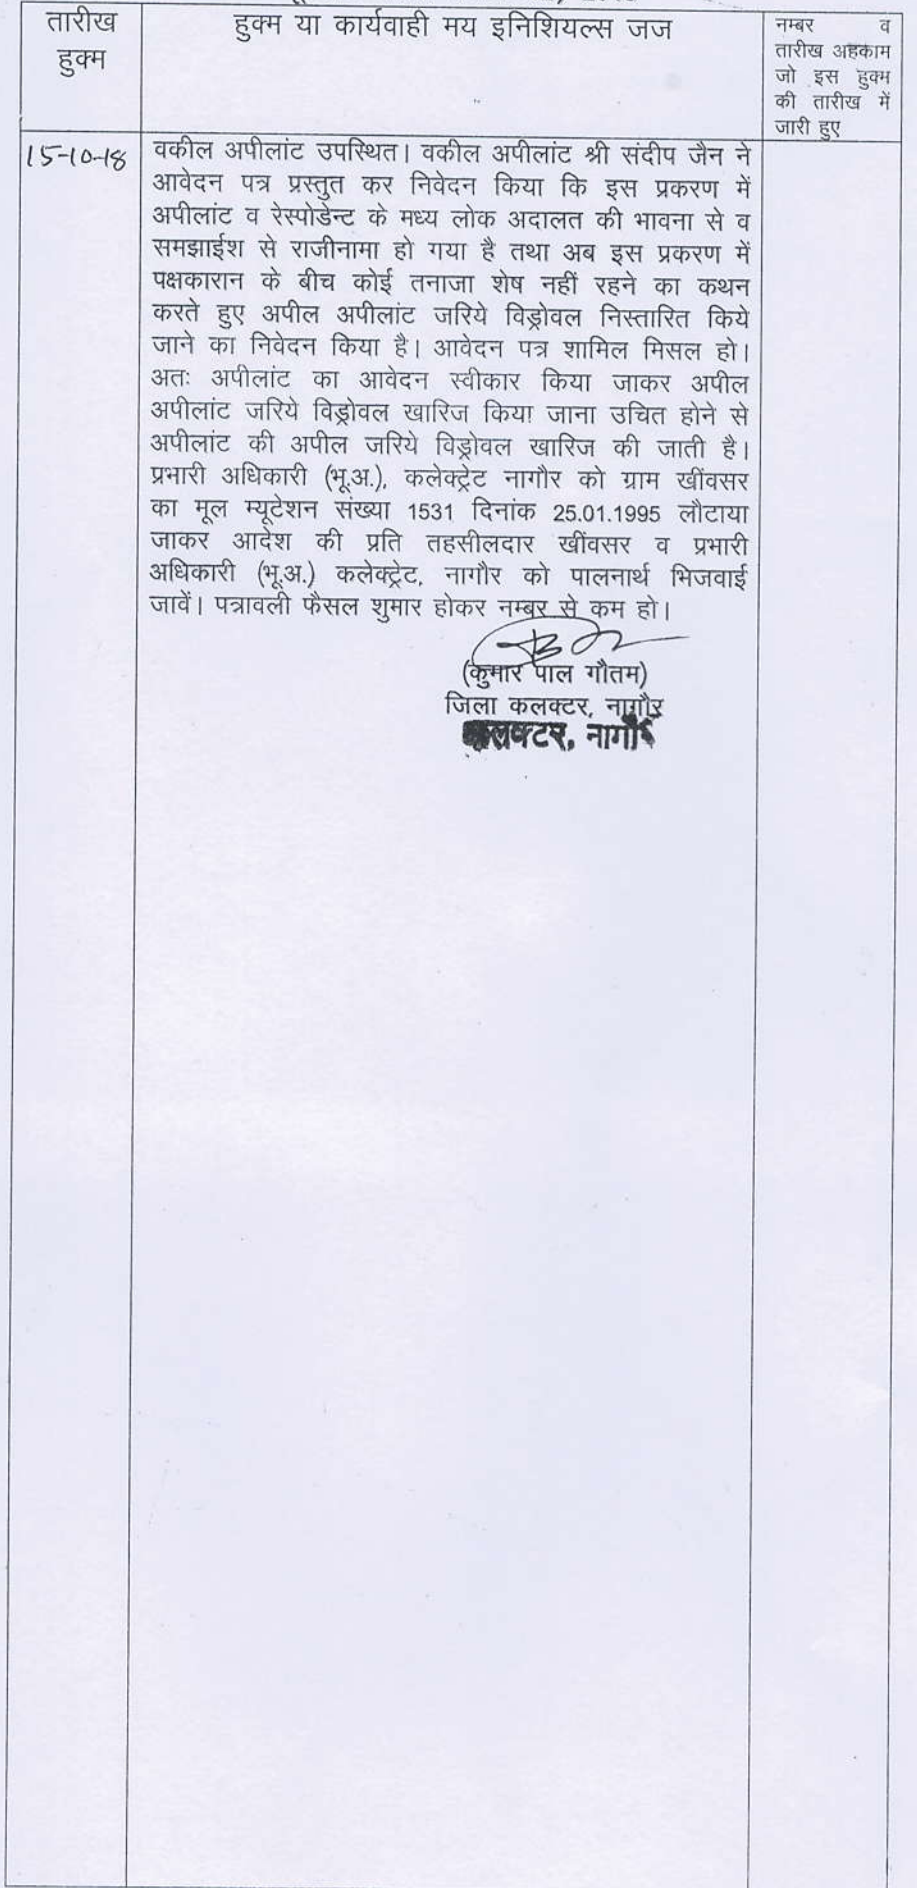 तारीख
हुक्म
हुक्म या कार्यवाही मय इनिशियल्स जज
नम्बर व
तारीख अहकाम
जो इस हुक्म
की तारीख में
जारी हुए
15-10-18
वकील अपीलांट उपस्थित। वकील अपीलांट श्री संदीप जैन ने
आवेदन पत्र प्रस्तुत कर निवेदन किया कि इस प्रकरण में
अपीलांट व रेस्पोडेन्ट के मध्य लोक अदालत की भावना से व
समझाईश से राजीनामा हो गया है तथा अब इस प्रकरण में
पक्षकारान के बीच कोई तनाजा शेष नहीं रहने का कथन
करते हुए अपील अपीलांट जरिये विड्रोवल निस्तारित किये
जाने का निवेदन किया है। आवेदन पत्र शामिल मिसल हो।
अतः अपीलांट का आवेदन स्वीकार किया जाकर अपील
अपीलांट जरिये विड्रोवल खारिज किया जाना उचित होने से
अपीलांट की अपील जरिये विड्रोवल खारिज की जाती है।
प्रभारी अधिकारी (भू.अ.), कलेक्ट्रेट नागौर को ग्राम खींवसर
का मूल म्यूटेशन संख्या 1531 दिनांक 25.01.1995 लौटाया
जाकर आदेश की प्रति तहसीलदार खींवसर व प्रभारी
अधिकारी (भू.अ.) कलेक्ट्रेट, नागौर को पालनार्थ भिजवाई
जावें। पत्रावली फैसल शुमार होकर नम्बर से कम हो।
(कुमार पाल गौतम)
जिला कलक्टर, नागौर
कलक्टर, नागौर